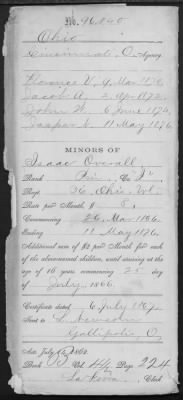 No. 96,840
Ohio
Cincinnati, O. Agency
Florence V. 9 Mar 1870
Jacob A. 2 Apr 1872
John W. 6 June 1874
Jasper N. 11 May 1876
MINORS OF
Isaac Overall
Rank Pri. Co. I
Regt 36 Ohio Vol.
Rate per Month $ 8,
Commencing 26 Mar 1866
Ending 11 May 1876.
Additional sum of $2 per Month for each
of the abovenamed children, until arriving at the
age of 16 years commencing 25 day
of July, 1866.
Certificate dated 6 July 1867
Sent to L. Newsom
Gallipolis, O,
Act July 1862.
Book Vol. Page 224
Clerk